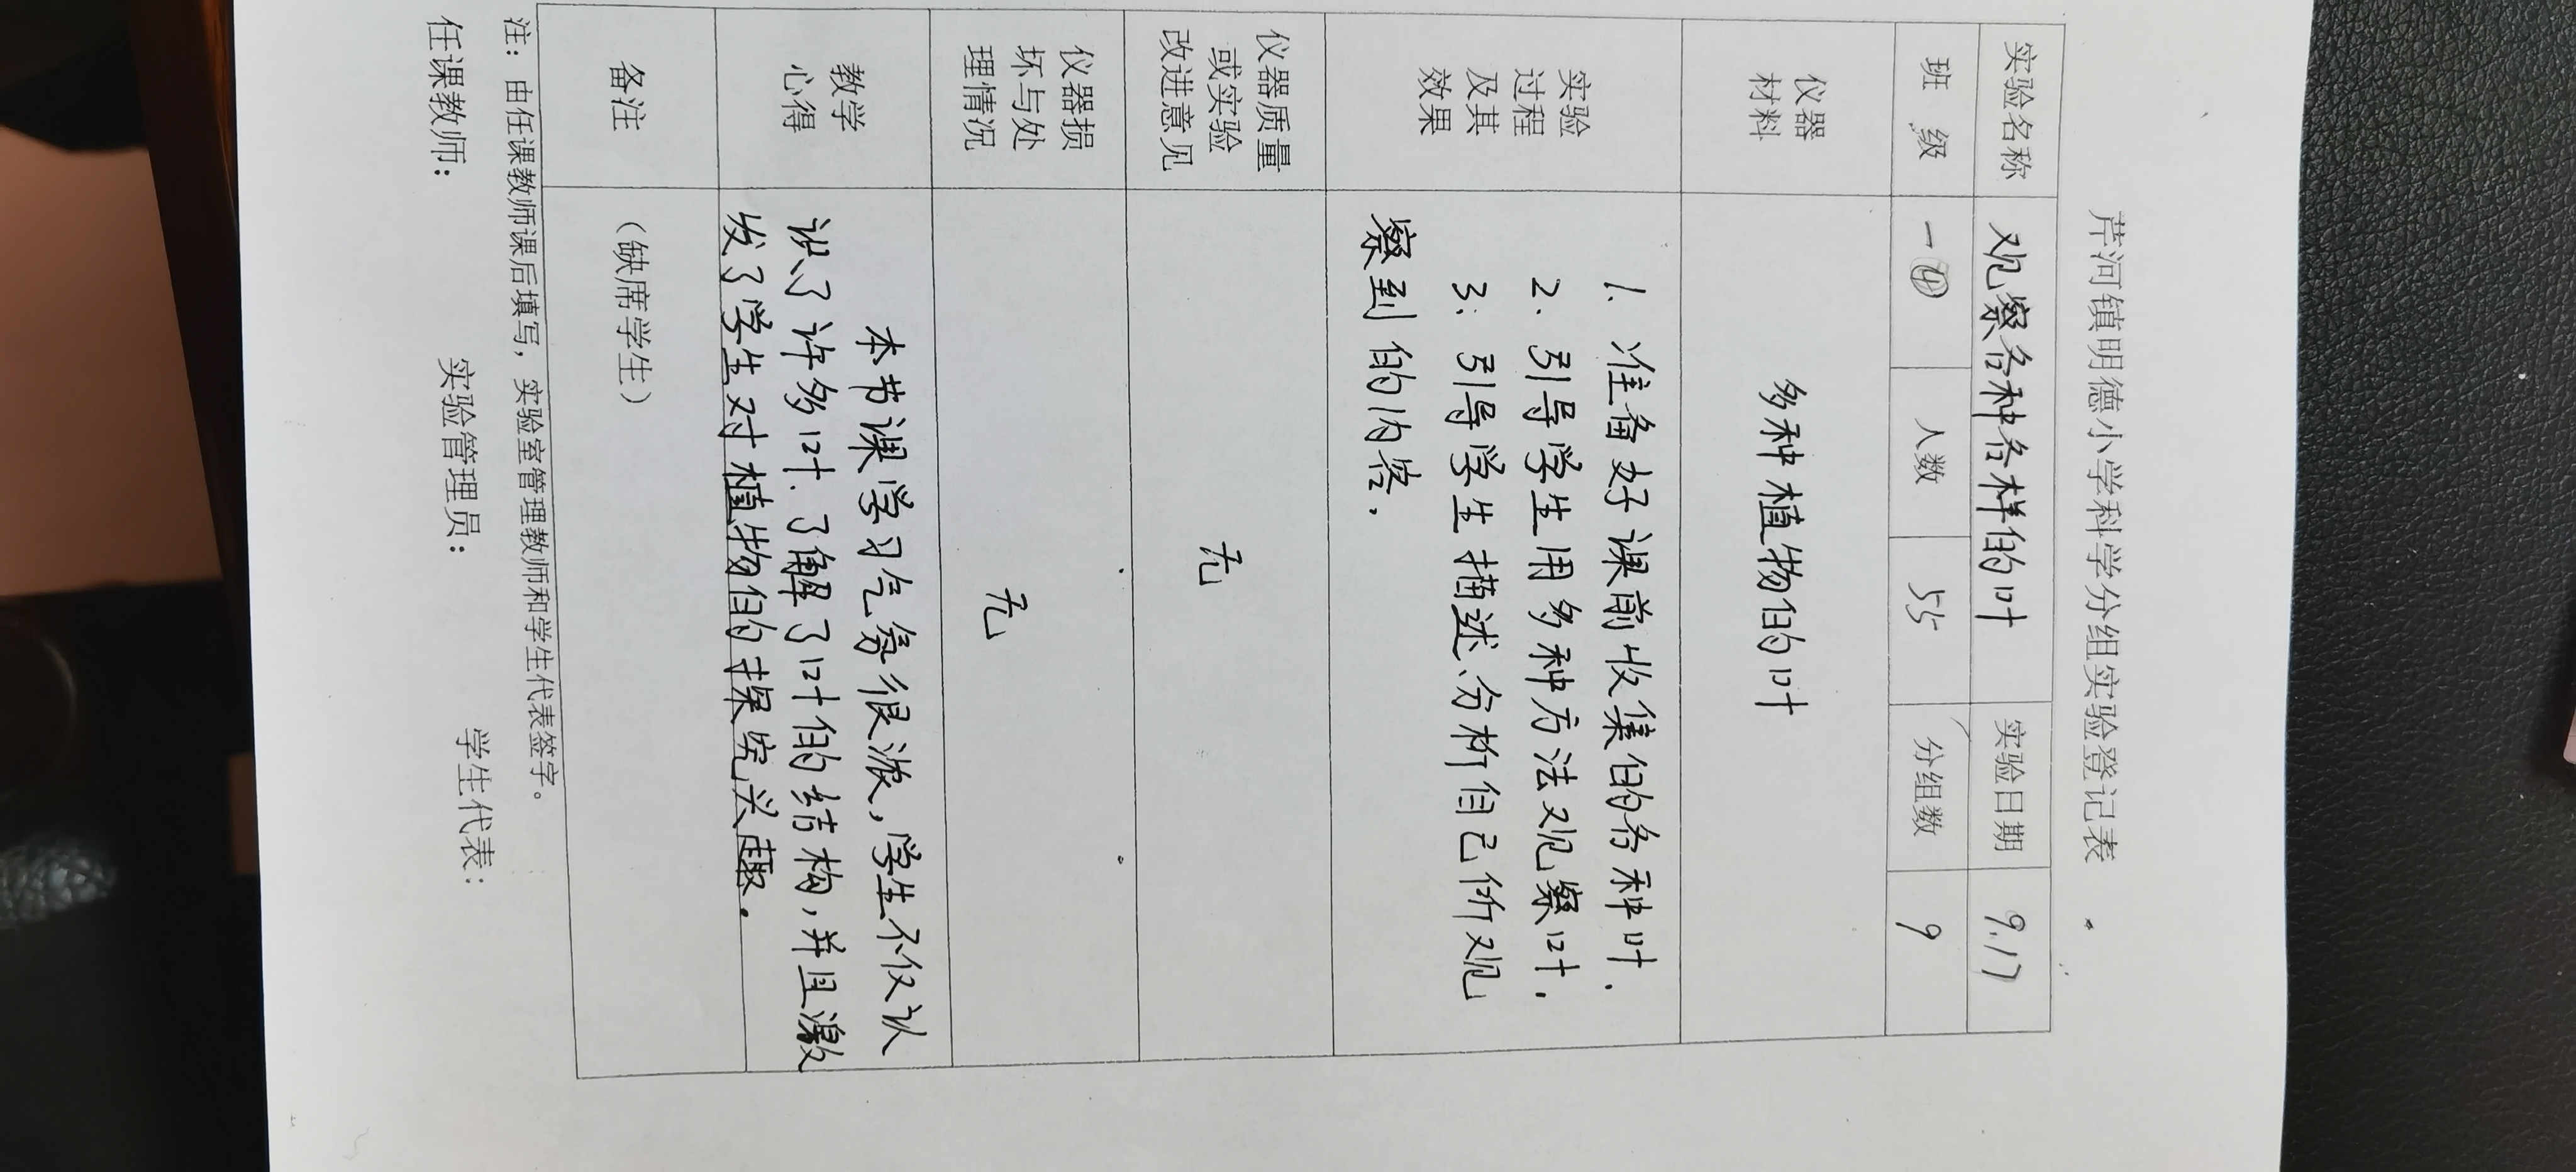 芹河镇明德小学科学分组实验登记表
实验名称 观察各种各样的叶 实验日期 9.17
班 级 一④ 人数 55 分组数 9
仪器
材料
多种植物的叶
实验
过程
及其
效果
1、准备好课前收集的各种叶.
2、引导学生用多种方法观察叶.
3、引导学生描述、分析自己所观
察到的内容.
仪器质量
或实验
改进意见
无
仪器损
坏与处
理情况
无
教学
心得
本节课学习气氛很浓,学生不仅认
识了许多叶、了解了叶的结构,并且激
发了学生对植物的探究兴趣.
备注
（缺席学生）
注：由任课教师课后填写，实验室管理教师和学生代表签字。
任课教师： 实验管理员： 学生代表：